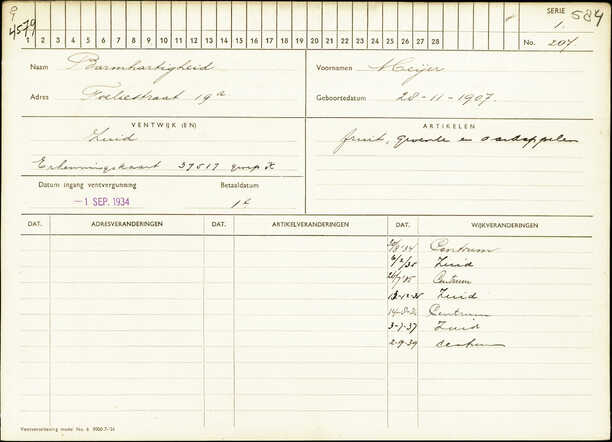 9
4579
SERIE 584
1.
1 2 3 4 5 6 7 8 9 10 11 12 13 14 15 16 17 18 19 20 21 22 23 24 25 26 27 28
No. 207.
Naam Barmhartigheid
Voornamen Meijer
Adres Foeliestraat 19a
Geboortedatum 28-11-1907.
VENTWIJK (EN)
ARTIKELEN
Zuid
fruit, groente en aardappelen
Erkenningskaart 37517 groep
Datum ingang ventvergunning
Betaaldatum
-1 SEP. 1934
1e
DAT. ADRESVERANDERINGEN DAT. ARTIKELVERANDERINGEN DAT. WIJKVERANDERINGEN
'34 Centrum
6/2/35 Zuid
26/7 '35 Centrum
13-12-35 Zuid
14-8-3 Centrum
3-7-37 Zuid
2-9-39 centrum
Ventverordening model No. 6